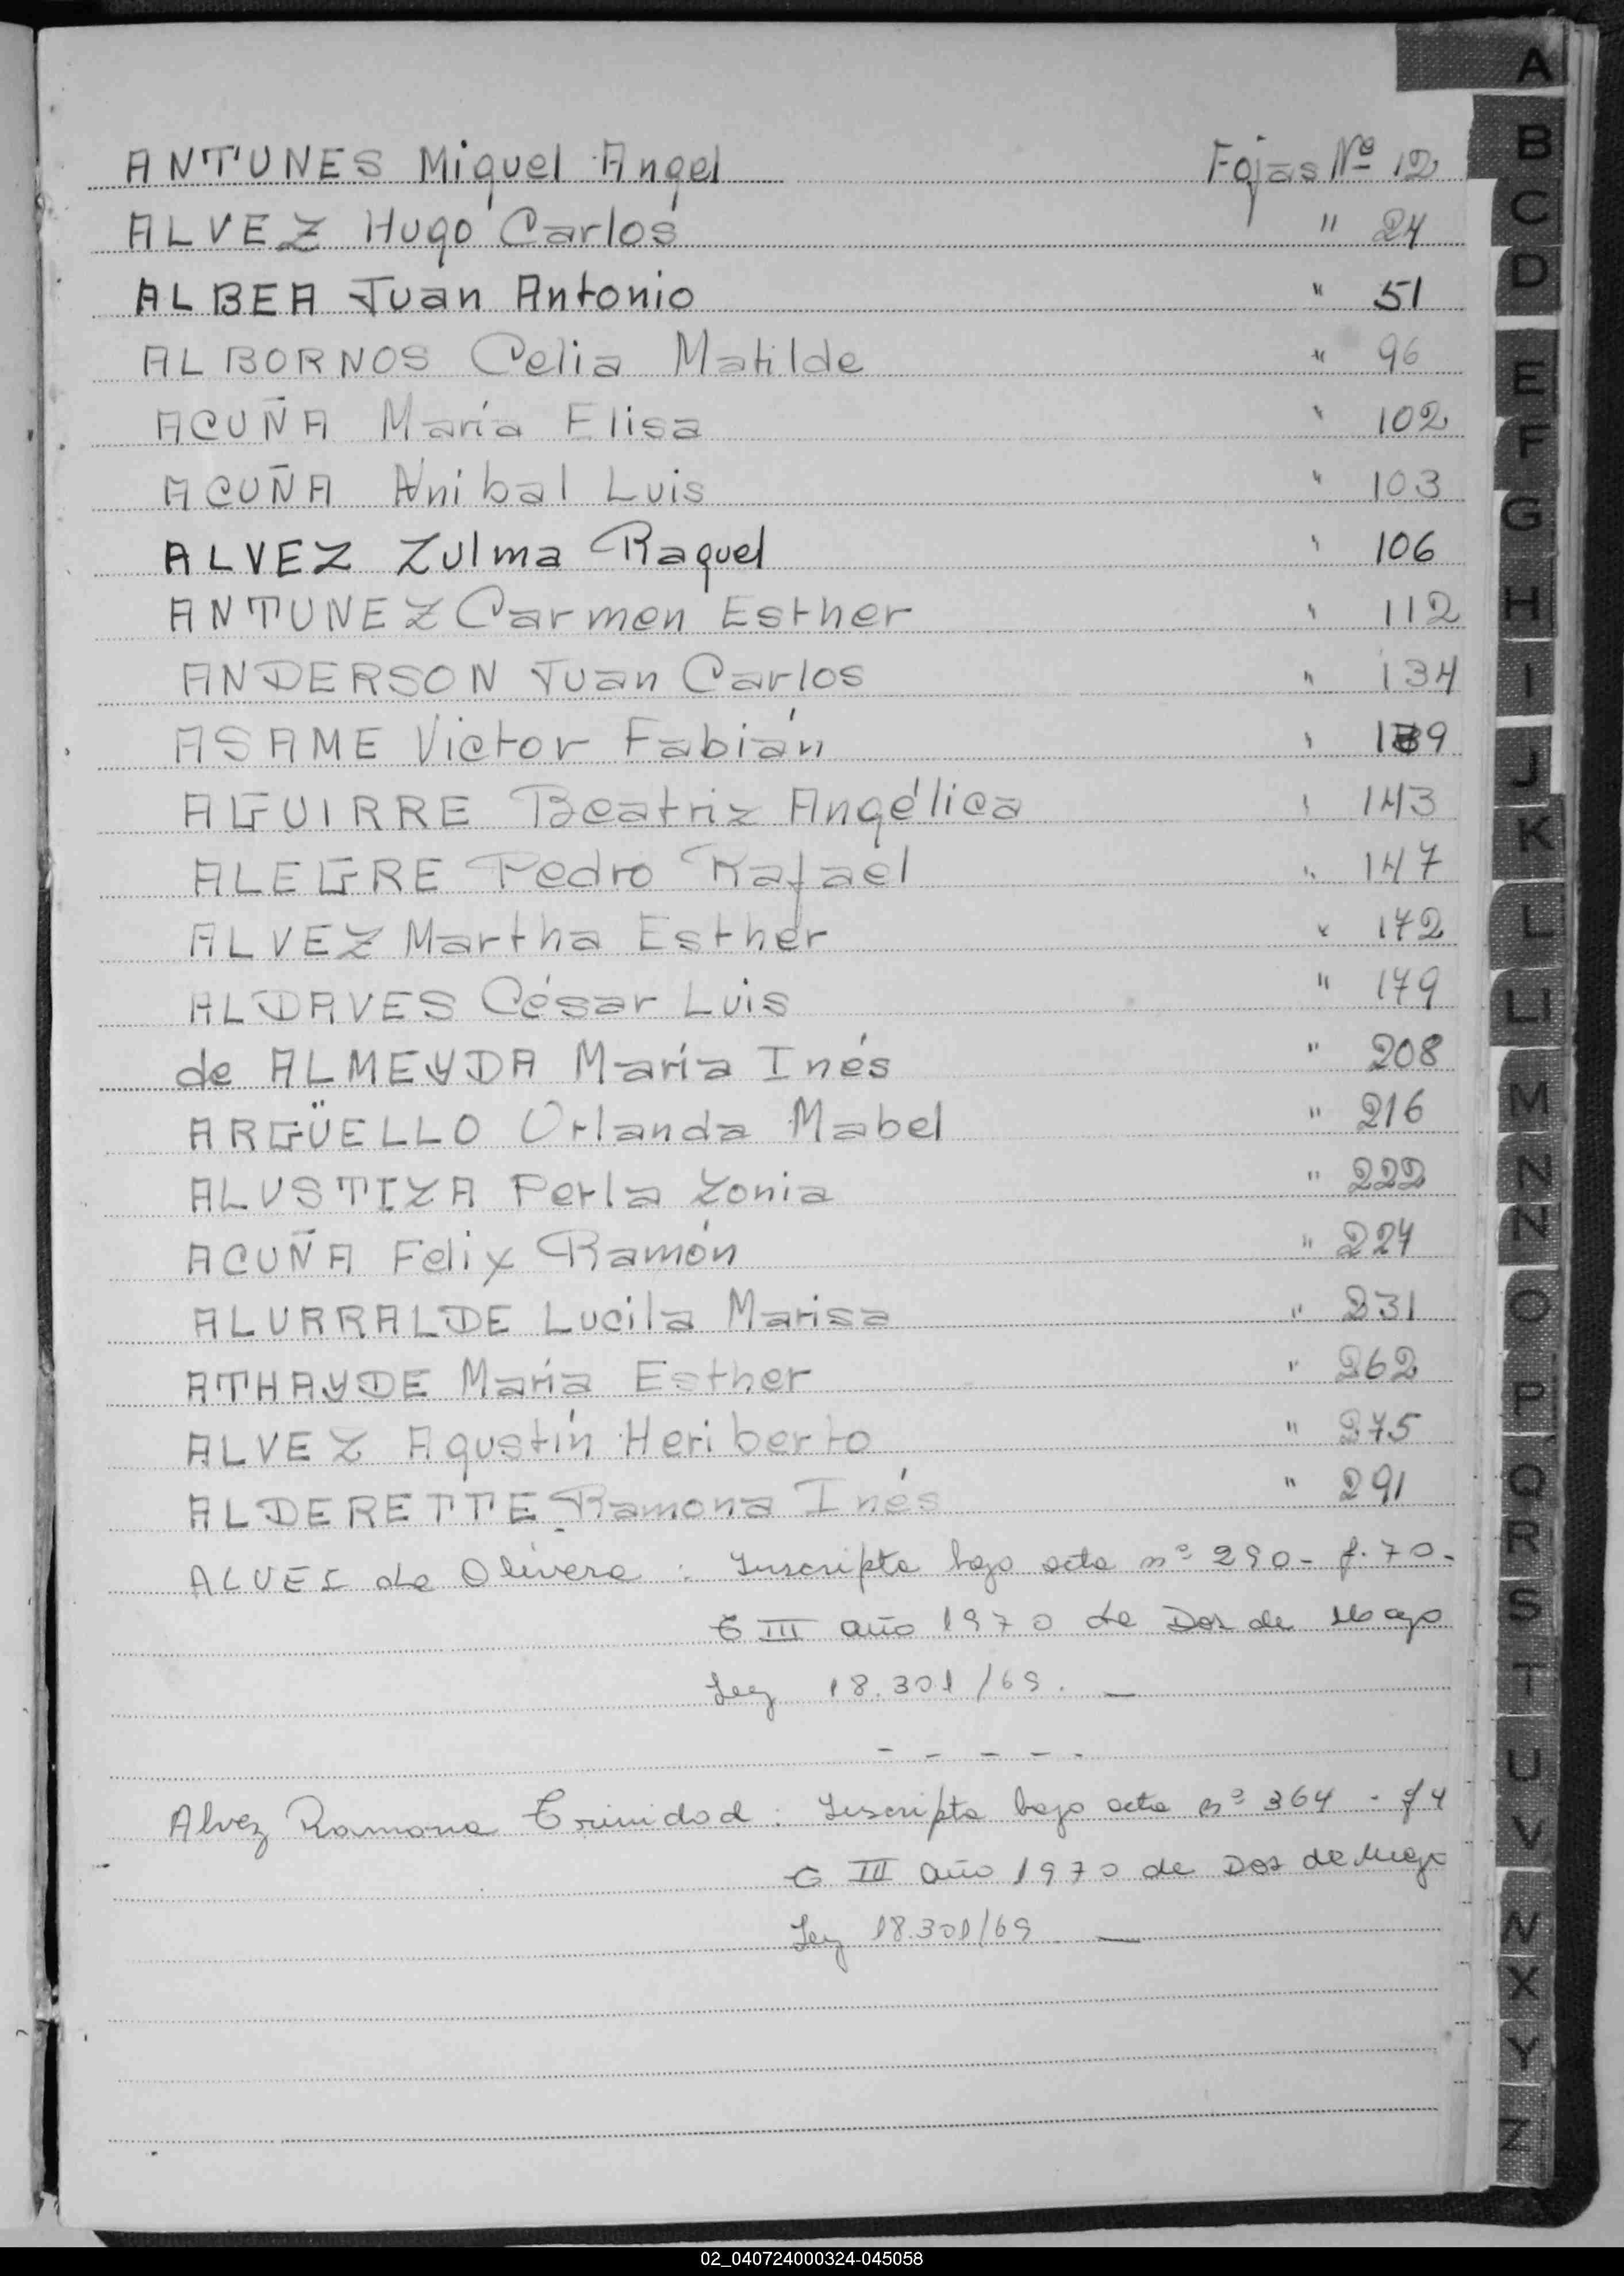 ANTUNES Miguel Angel Fojas Nº 12
ALVEZ Hugo Carlos " 24
ALBEA Juan Antonio " 51
ALBORNOS Celia Matilde " 96
ACUÑA María Elisa " 102
ACUÑA Anibal Luis " 103
ALVEZ Zulma Raquel " 106
ANTUNEZ Carmen Esther " 112
ANDERSON Juan Carlos " 134
ASAME Victor Fabián " 139
AGUIRRE Beatriz Angélica " 143
ALEGRE Pedro Rafael " 147
ALVEZ Martha Esther " 172
ALDAVES César Luis " 179
de ALMEYDA María Inés " 208
ARGÜELLO Orlanda Mabel " 216
ALUSTIZA Perla Zonia " 222
ACUÑA Felix Ramón " 224
ALURRALDE Lucila Marisa " 231
ATHAYDE María Esther " 262
ALVEZ Agustín Heriberto " 275
ALDERETTE Ramona Inés " 291
ALVES de Olivera : Inscripta bajo acta nº 290 - f. 70 -
T III año 1970 de Dos de Mayo
Ley 18.301/69. —
- - - - -
Alvez Ramona Trinidad : Inscripta bajo acta nº 364 - f 4
T III año 1970 de Dos de Mayo
Ley 18.301/69 —
A
B
C
D
E
F
G
H
I
J
K
L
LI
M
N
N
O
P
Q
R
S
T
U
V
W
X
Y
Z
02_040724000324-045058